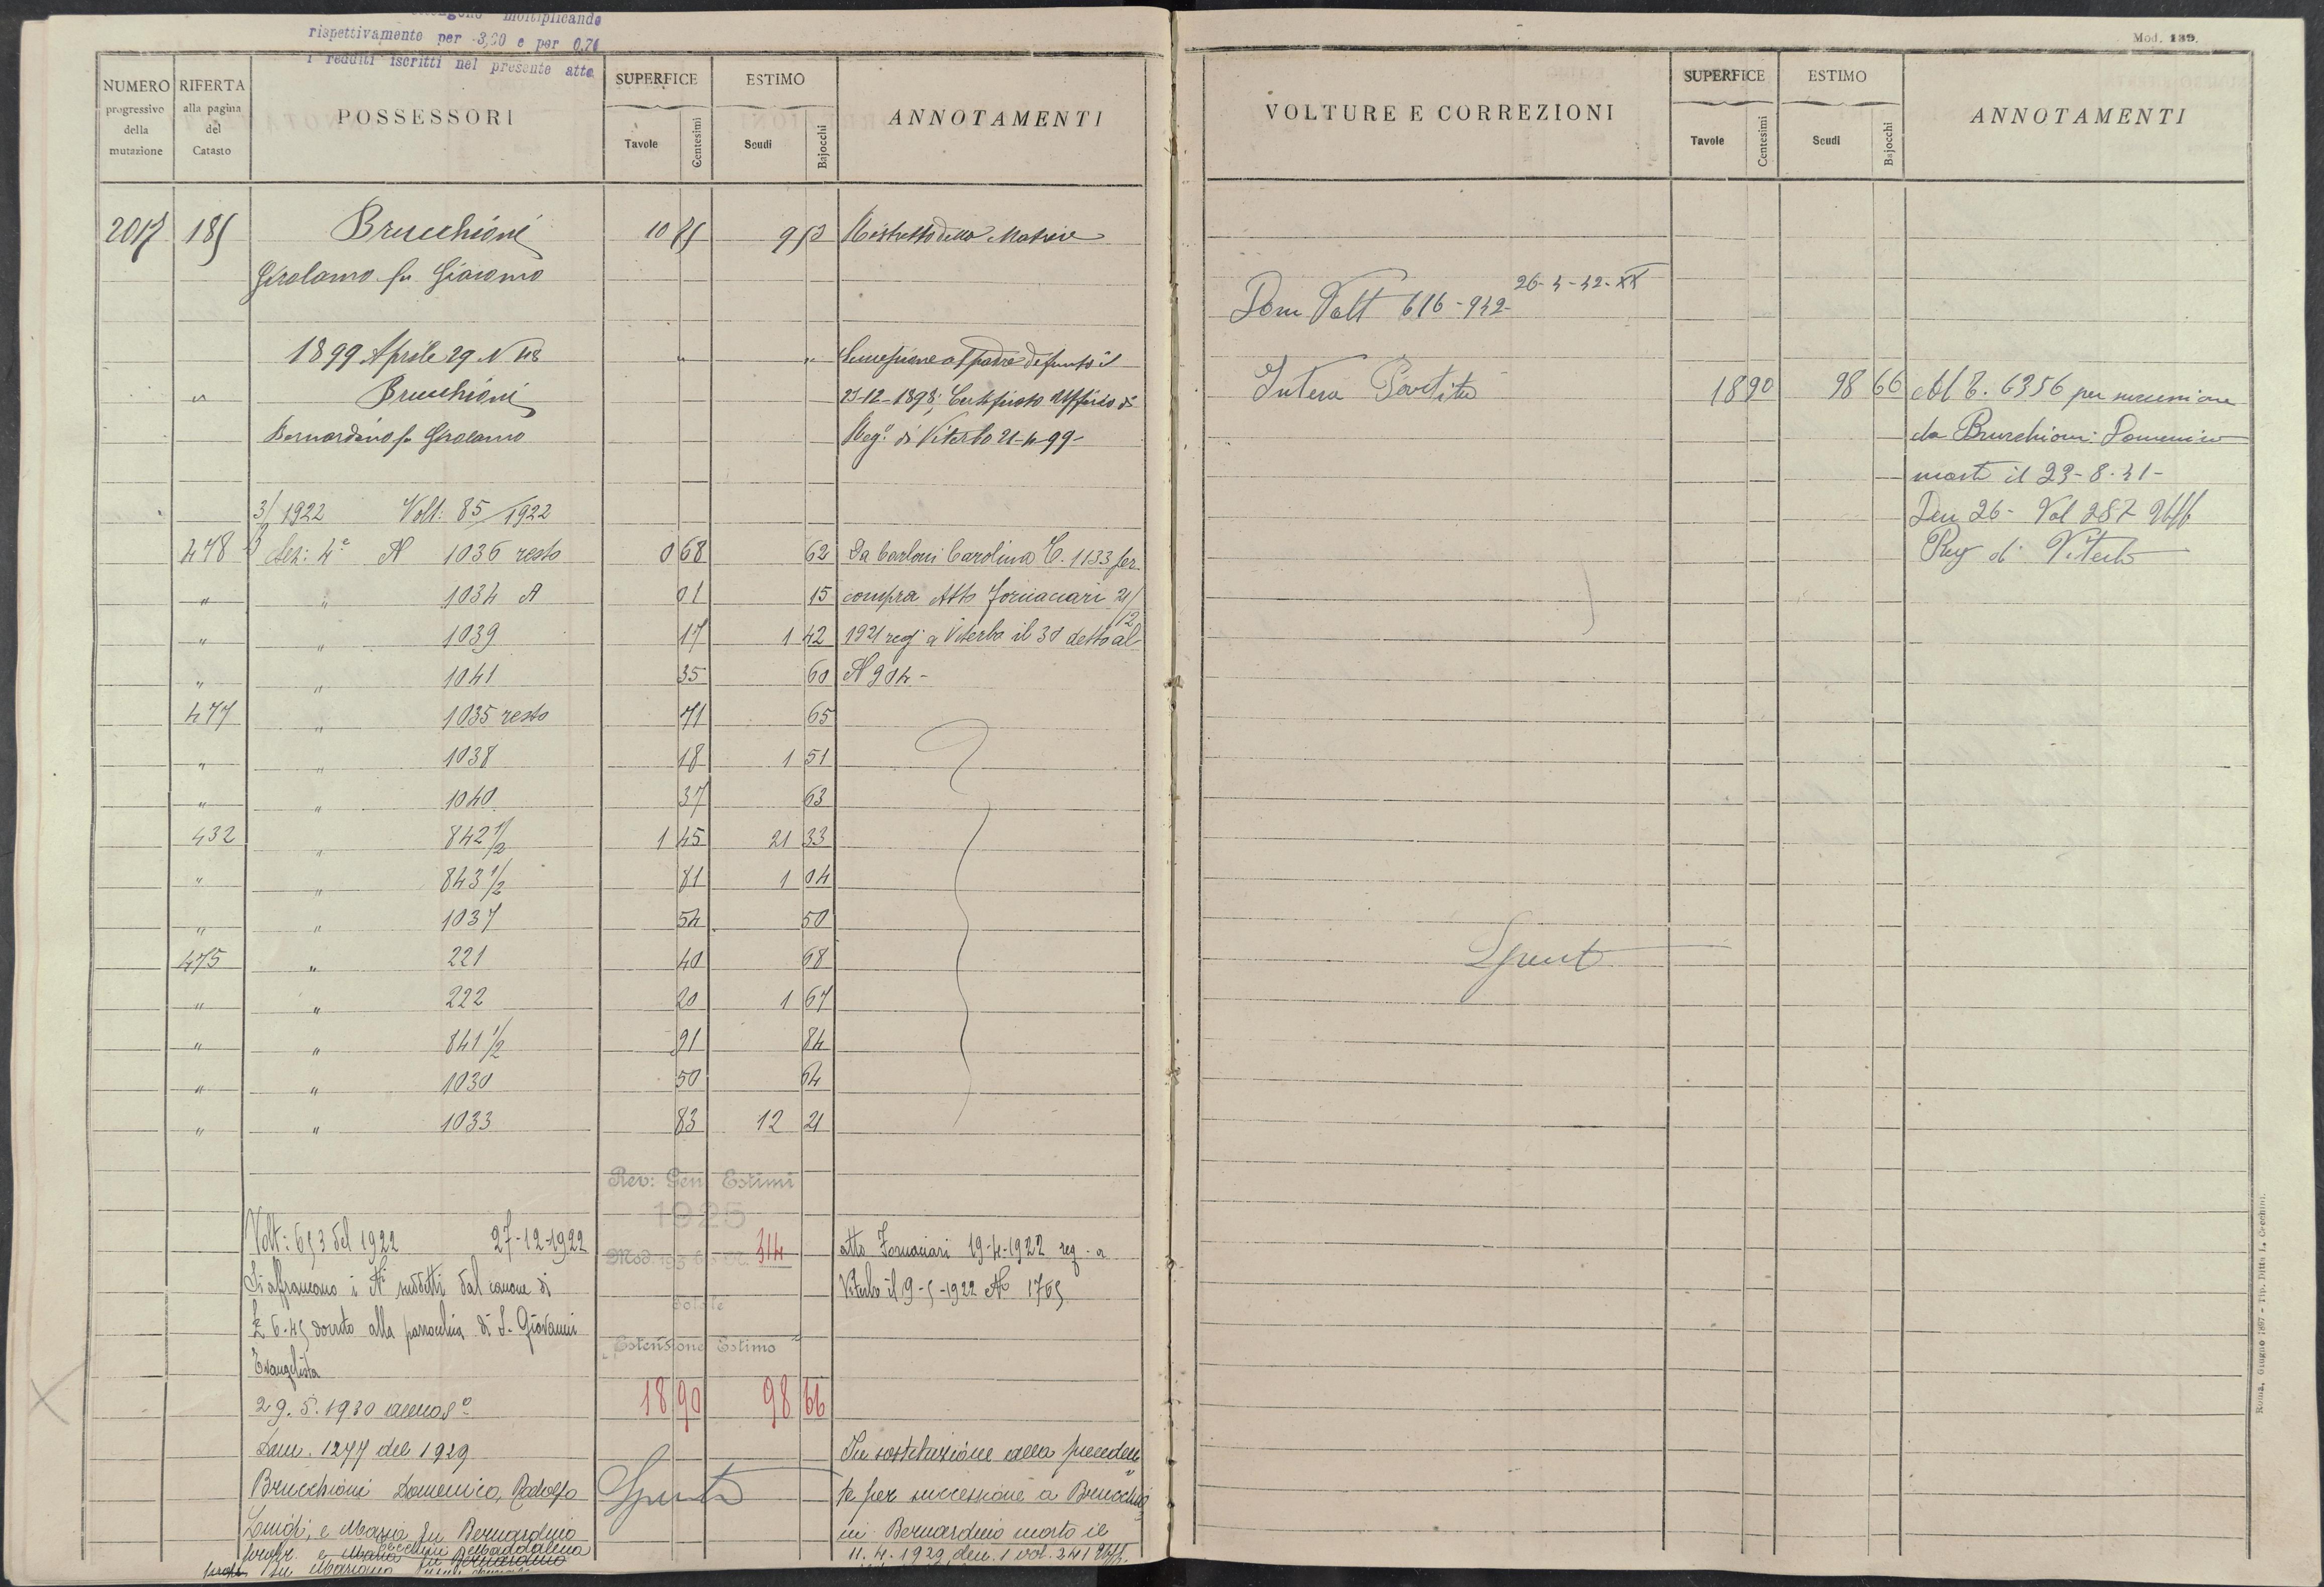 moltiplicando
rispettivamente per 3,00 e per 0,70
i redditi iscritti nel presente atto
NUMERO progressivo della mutazione
RIFERTA alla pagina del Catasto
POSSESSORI
SUPERFICE
Tavole Centesimi
ESTIMO
Scudi Bajocchi
ANNOTAMENTI
2017 185 Brucchioni 10 85 9 53 Ristretto della Matrice
Girolamo fu Giacomo
1899 Aprile 29 N 48 " " Successione al padre defunto il
" Brucchioni 25-12-1898; Certificato Ufficio di
Bernardino fu Girolamo Reg.º di Viterbo 21-4-99-
3/ 1922 Volt: 85/1922
478 Sez: 4ª N 1036 resto 0 68 62 Da Carloni Carolina C. 1133 per
" " 1034 A 01 15 compra Atto Fornaciari 21/12
" " 1039 17 1 42 1921 reg. a Viterbo il 30 detto al
" " 1041 35 60 N 904-
477 " 1035 resto 71 65
" " 1038 18 1 51
" " 1040 37 63
432 " 842 1/2 1 45 21 33
" " 843 1/2 81 1 04
" " 1037 54 50
475 " 221 40 68
" " 222 20 1 67
" " 841 1/2 91 84
" " 1030 50 64
" " 1033 83 12 21
Rev: Gen Estimi
1925
Volt: 653 del 1922 27-12-1922 Mod. 314 atto Fornaciari 19-4-1922 reg. a
Si affrancano i Nⁱ suddetti dal canone di Viterbo il 9-5-1922 Nº 1765
Totale
£ 6.45 dovuto alla parrocchia di S. Giovanni
Estensione Estimo
Evangelista
18 90 98 66
29.5.1930
Dom. 1277 del 1929 In sostituzione alla preceden
Brucchioni Domenico, Rodolfo Spenta te per successione a Brucchio
Luigi, e Maria fu Bernardino ni Bernardino morto il
Maddalena
Maria fu Bernardino 11.4.1929, den. 1 vol. 241 Uff.
fu Mariano
Mod. 139.
VOLTURE E CORREZIONI
SUPERFICE
Tavole Centesimi
ESTIMO
Scudi Bajocchi
ANNOTAMENTI
26-4-42-XX
Dom Volt 616-942-
Intera Partita 18 90 98 66 Al C. 6356 per successione
da Brucchioni Domenico
morto il 23-8-41-
Den 26- Vol 287 Uff
Reg di Viterbo
Spent
Roma, Giugno 1897 - Tip. Ditta L. Cecchini.